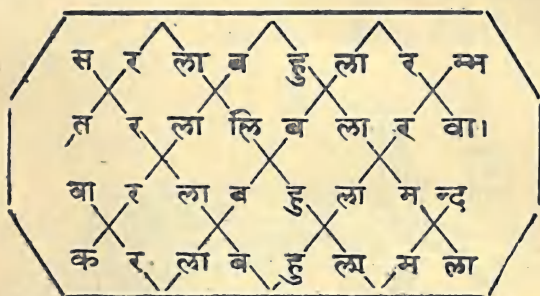 स र ला ब हु ला र म्भ
त र ला लि ब ला र वा।
वा र ला ब हु ला म न्द
क र ला ब हु ला म ला